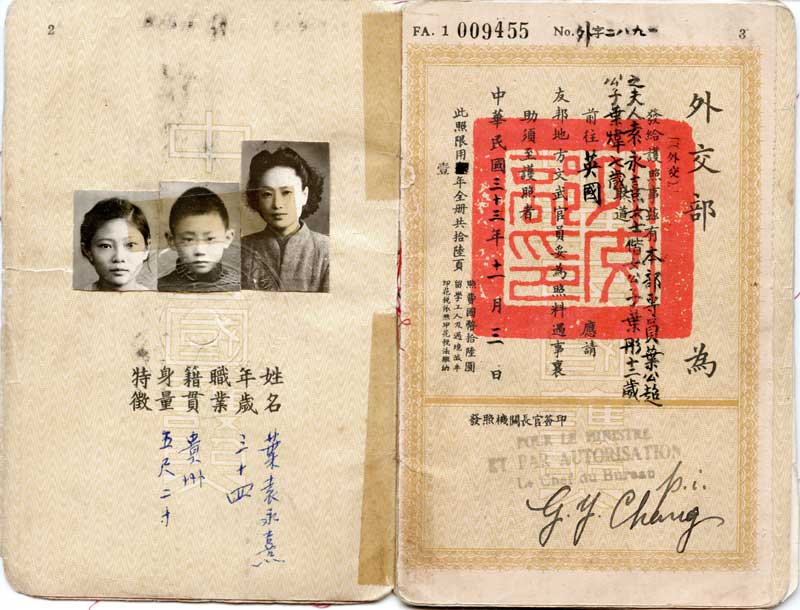 2
姓名 葉袁永熹
年歲 三十四
職業
籍貫 貴州
身量 五尺二寸
特徵
FA. 1 009455 No. 外字二八九一 3
外交部 為
發給護照事茲有本部專員葉公超
(外交)
之夫人袁永熹女士偕女公子葉彤十二歲
公子葉煒七歲取道
前往英國 應請
友邦地方文武官員妥為照料遇事襄
助須至護照者
中華民國三十三年十一月三日
此照限用 年全册共拾陸頁
壹
照費國幣拾陸圓
留學工人及過境減半
印花稅依照印花稅法繳納
發照機關長官簽印
POUR LE MINISTRE
ET PAR AUTORISATION
Le Chef du Bureau
p.i.
G. Y. Chang